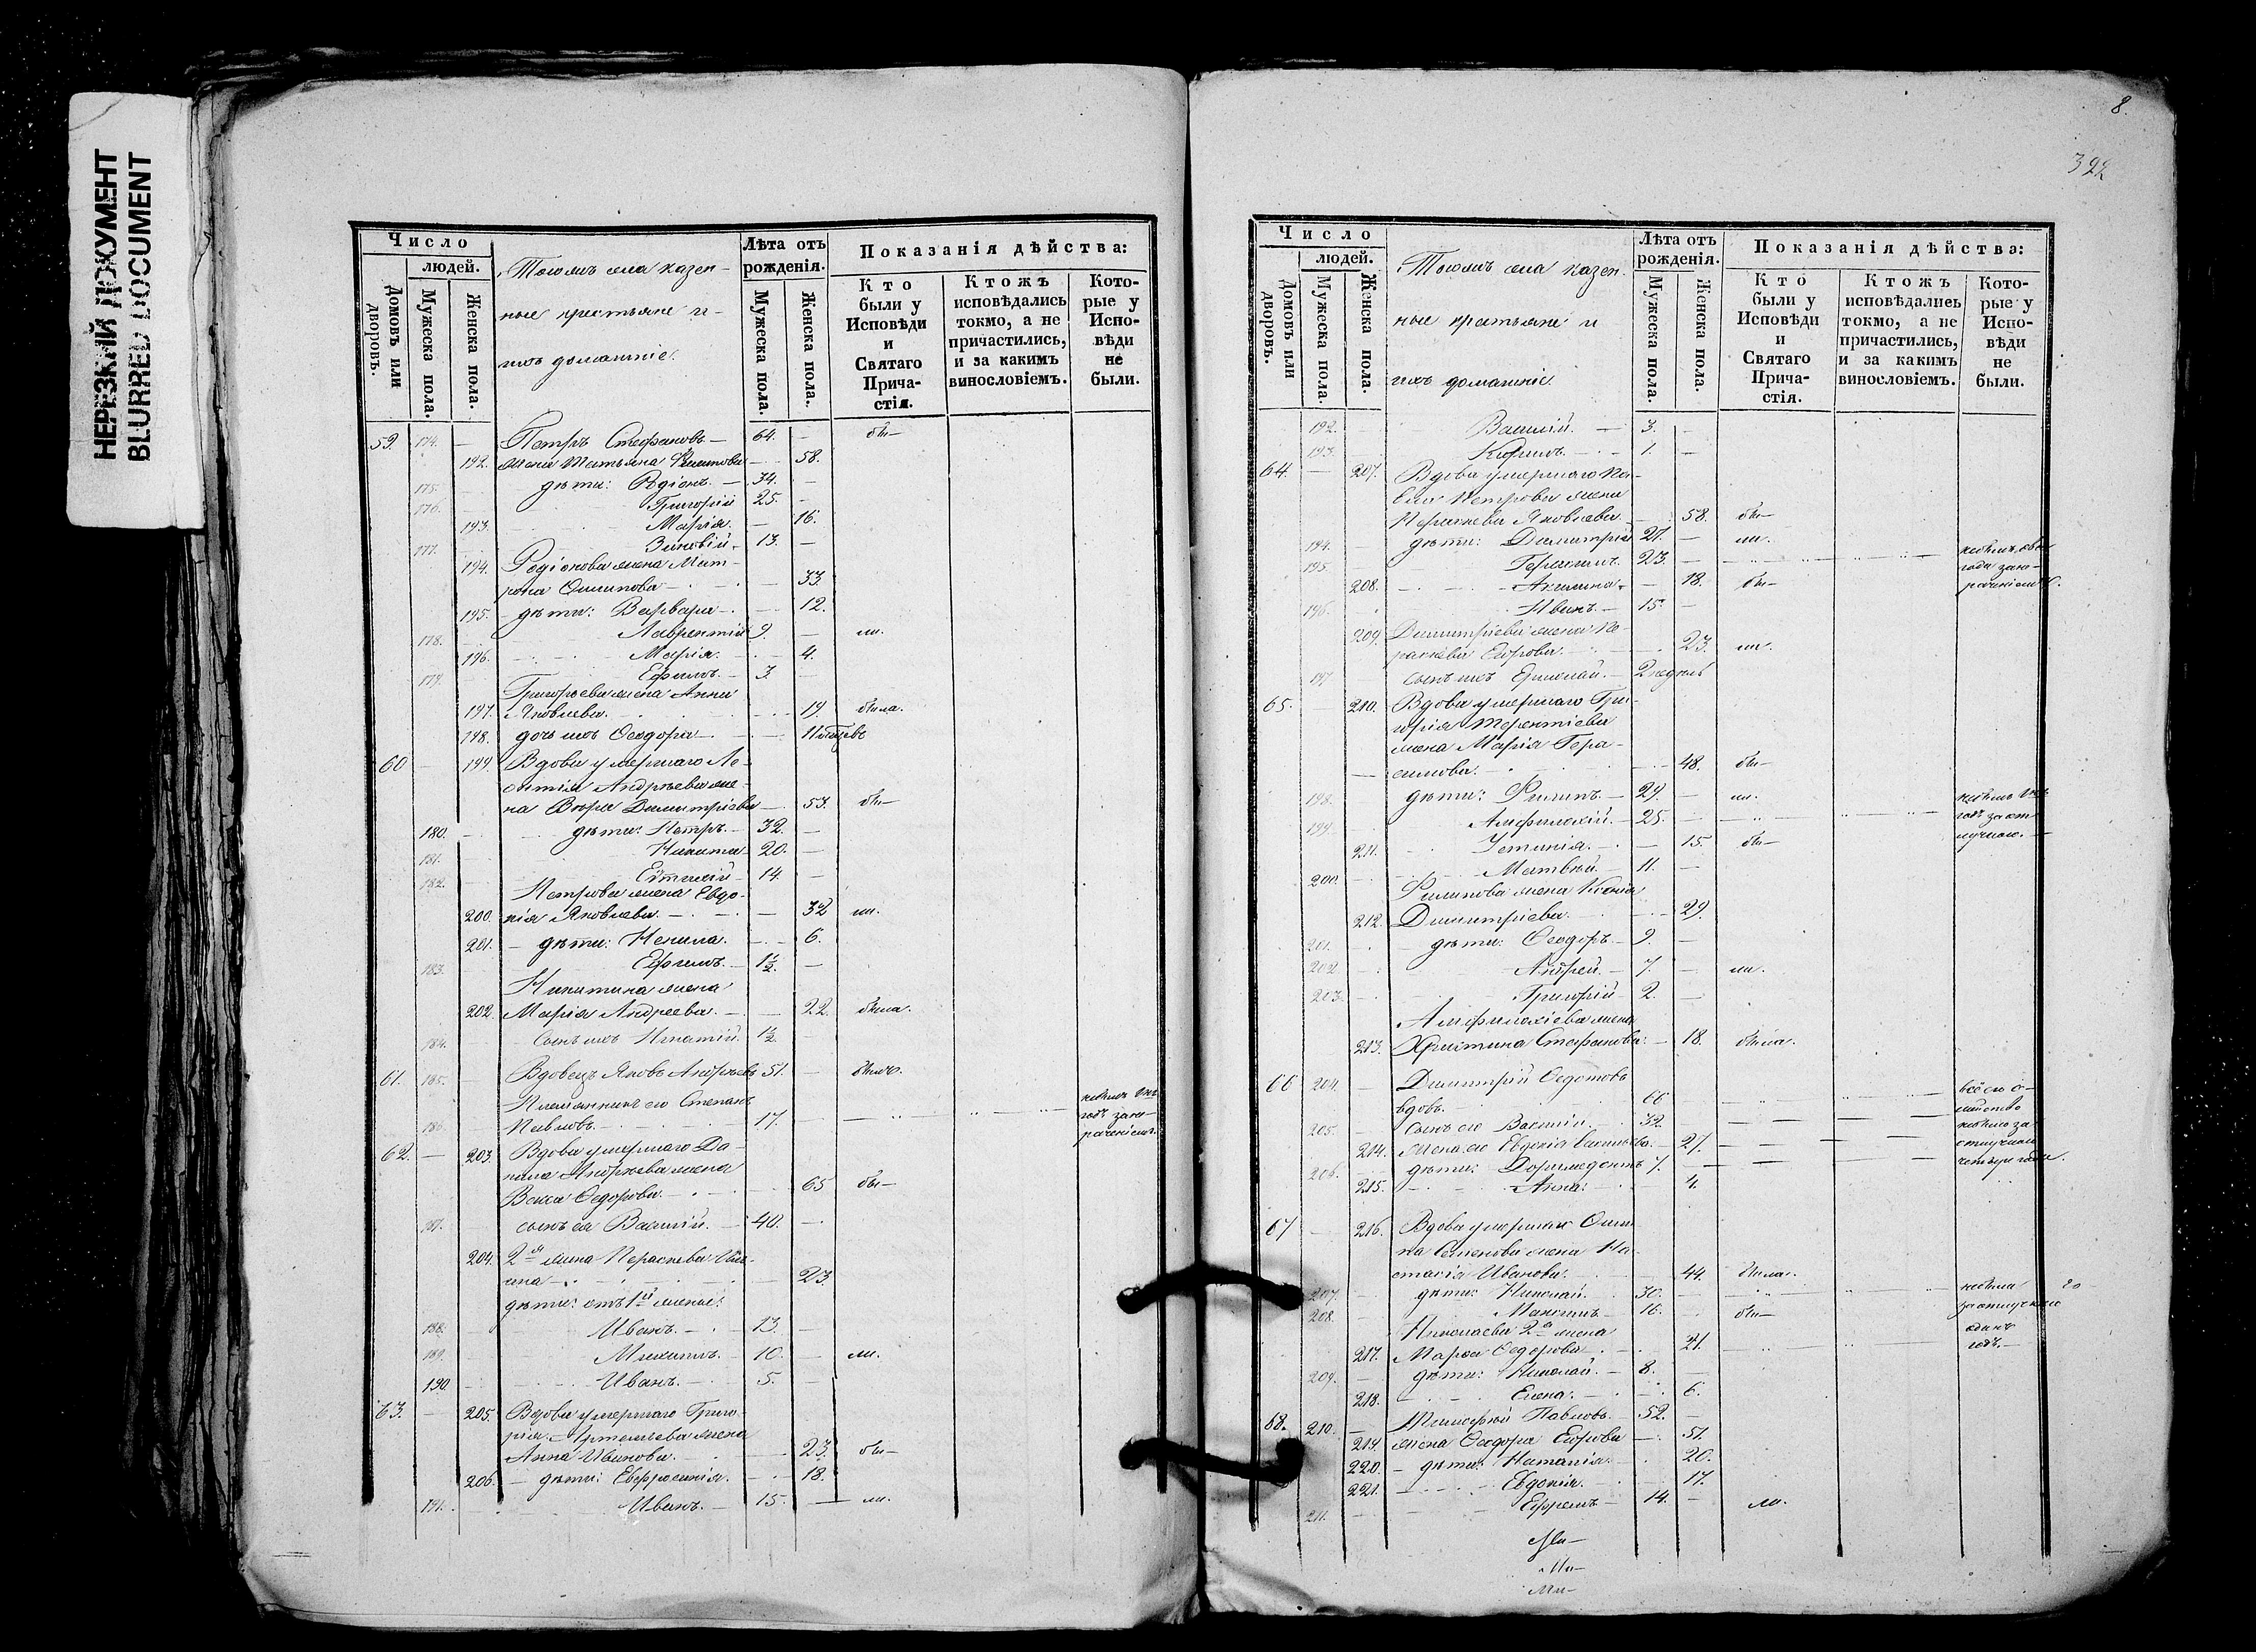 НЕРЕЗКИЙ ДОКУМЕНТ
BLURRED DOCUMENT
Число
людей.
Домовъ или дворовъ.
Мужеска пола.
Женска пола.
Тогожъ села казен-
ные крестьяне и
ихъ домашніе.
Лѣта отъ рожденія.
Мужеска пола.
Женска пола.
Показанія дѣйства:
Кто были у Исповѣди и Святаго Прича-стія.
Ктожъ исповѣдались токмо, а не причастились, и за какимъ винословіемъ.
Кото-рые у Испо-вѣди не были.
59. 174. — Петръ Стефановъ — 64. — бы—
192. жена Татьяна — 58.
175. дѣти: Родіонъ. — 34. —
176. Григорій 25. —
193. Марія. — 16.
177. Зиновій. 13. —
194. Родіонова жена Мат-
рона Осипова — 33.
195. дѣти: Варвара — 12.
178. Лаврентій 9. — ли.
196. Марія. — 4.
179. Ефимъ. — 3. —
Григорьева жена Анна
197. Яковлева. — 19. была.
198. дочь ихъ Ѳеодора —
60 — 199. Вдова умершаго Ле-
онтія Андреева же-
на Вѣра Димитріева — 53. бы—
180. дѣти: Петръ. — 32. —
181. Никита 20. —
182. 14. —
Петрова жена Евдо-
200. кія Яковлева. — 32 ли.
201. — дѣти: Ненила. — 6.
183. Ефимъ. — 1½. —
Никитина жена
202. Марія Андреева. — 22. была.
184. сынъ ихъ Игнатій. 1½. —
61. 185. — Вдовецъ Яковъ Андреевъ 51. — былъ.
Племянникъ его Степанъ
186. Павловъ. 17. —
62. — 203. Вдова умершаго Да-
нила Андреева жена
Ѳедорова. — 65 бы—
187. сынъ ея Василій. — 40. —
204. 2я жена Параскева
— 23
дѣти: отъ 1й жены:
188. Иванъ. — 13. —
189. 10. — ли.
190. Иванъ. — 5. —
63. — 205. Вдова умершаго Григо-
рія Артемьева жена
Анна Иванова. — 23. бы—
206. — дѣти: Евфросинія. — 18.
191. Иванъ. — 15. — ли.
8.
322
Число
людей.
Домовъ или дворовъ.
Мужеска пола.
Женска пола.
Тогожъ села казен-
ные крестьяне и
ихъ домашніе.
Лѣта отъ рожденія.
Мужеска пола.
Женска пола.
Показанія дѣйства:
Кто были у Исповѣди и Святаго Прича-стія.
Ктожъ исповѣдались токмо, а не причастились, и за какимъ винословіемъ.
Кото-рые у Испо-вѣди не были.
192. Василій. — 3. —
193. 1. —
64. — 207. Вдова умершаго Па-
вла Петрова жена
Параскева Яковлева — 58. бы—
194. дѣти: Димитрій 27. — ли.
195. Герасимъ. 23. —
208. Акилина — 18. бы—
196. Иванъ. — 15. —
209. Димитріева жена Па-
раскева Егорова. — 23. ли.
197 сынъ ихъ 2 недѣль
65. 210. Вдова умершаго Гри-
горія Терентіева
жена Марія Гера-
симова. — 48. бы—
198. дѣти: Филипъ. — 29. — ли.
199. Амфилохій. — 25. —
211. Устинія. — 15. бы—
200. Матвѣй — 11. —
Филипова жена Ксенія
212. Димитріева. — 29.
201. — дѣти: Ѳеодоръ. — 9. —
202 Андрей. — 7. — ли.
203. Григорій — 2. —
Амфилохіева жена
213. Христина Стефанова. — 18. была.
66 204. — Димитрій Ѳедотовъ
вдовъ. 66
205. сынъ его Василій. 32.
214. Жена его Евдокія — 27.
206. дѣти: Доримедонтъ 7. —
215. Анна: — 4.
67 — 216. Вдова умершаго Оси-
па Семенова жена На-
стасія Иванова. — 44. была.
207. дѣти: Николай. — 30. —
208. Максимъ — 16. — бы—
Николаева 2я жена
217. Марѳа Ѳедорова — 21.
209. — дѣти: Николай. — 8. —
218. Елена: — 6.
68. 210. — Тимофей Павловъ. — 52. —
219. жена Ѳеодора Егорова — 51.
220. — дѣти: Наталія — 20.
221. Евдокія. — 17.
211. Ефремъ — 14. — ли.